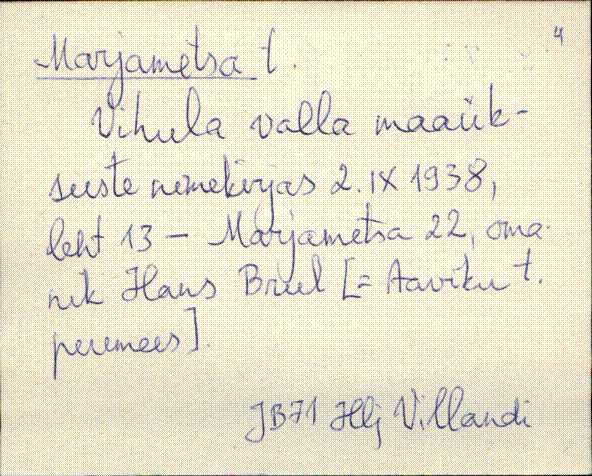 4
Marjametsa t.
Vihula valla maaük-
suste nimekirjas 2.IX 1938,
leht 13 – Marjametsa 22, oma-
nik Hans Bruel [= Aaviku t.
peremees].
JB71 Hlj Villandi